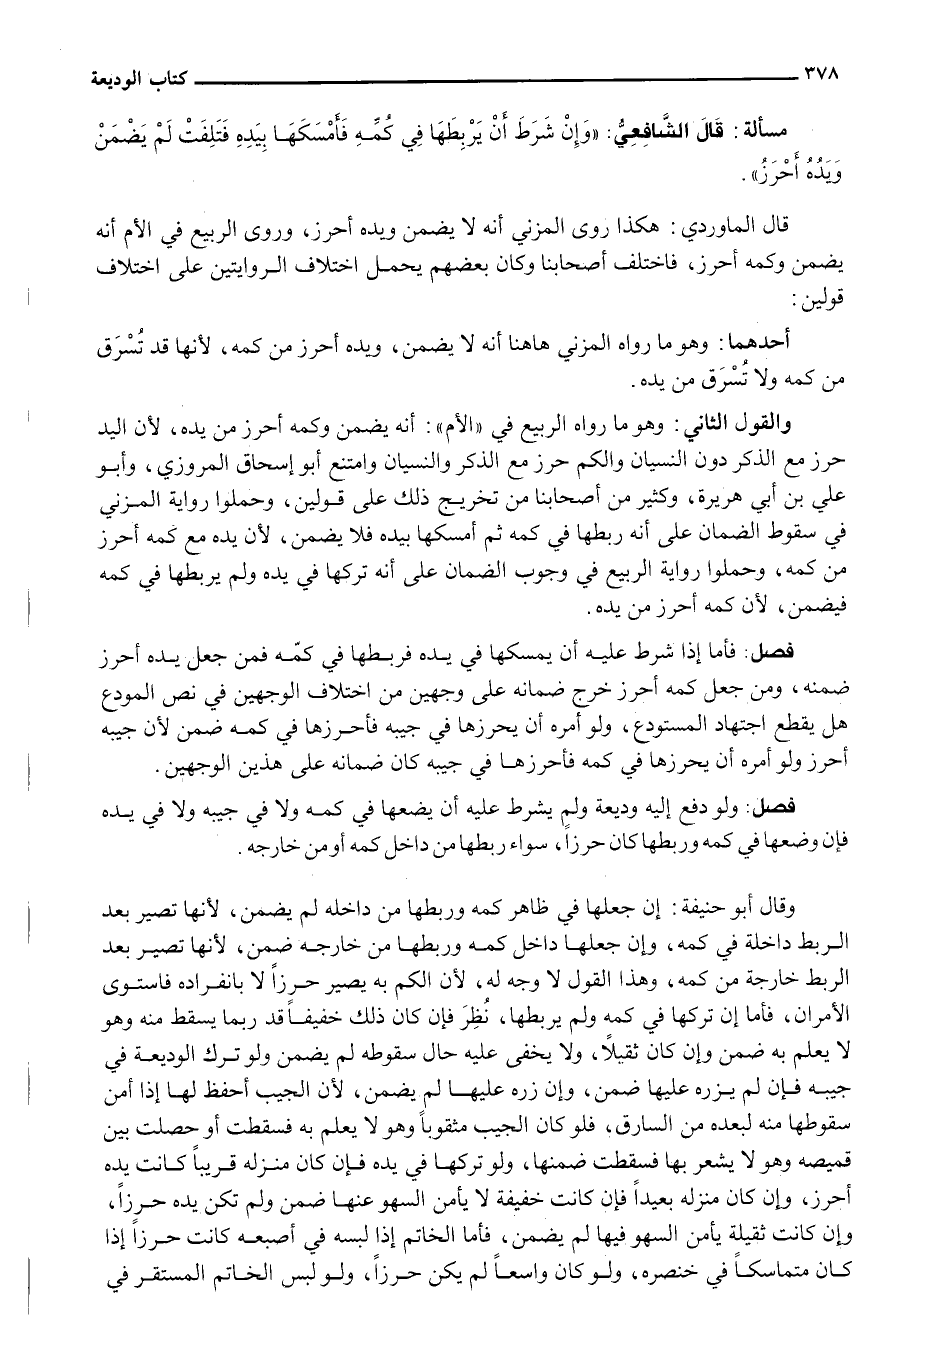 ٣٧٨ كتاب الوديعة
مسألة: قَالَ الشَّافِعِيُّ: «وَإِنْ شَرَطَ أَنْ يَرْبِطَهَا فِي كُمِّهِ فَأَمْسَكَهَا بِيَدِهِ فَتَلِفَتْ لَمْ يَضْمَنْ
وَيَدُهُ أَحْرَزُ».
قال الماوردي: هكذا روى المزني أنه لا يضمن ويده أحرز، وروى الربيع في الأم أنه
يضمن وكمه أحرز، فاختلف أصحابنا وكان بعضهم يحمل اختلاف الروايتين على اختلاف
قولين:
أحدهما: وهو ما رواه المزني هاهنا أنه لا يضمن، ويده أحرز من كمه، لأنها قد تُسْرَق
من كمه ولا تُسْرَق من يده.
والقول الثاني: وهو ما رواه الربيع في «الأم»: أنه يضمن وكمه أحرز من يده، لأن اليد
حرز مع الذكر دون النسيان والكم حرز مع الذكر والنسيان وامتنع أبو إسحاق المروزي، وأبو
علي بن أبي هريرة، وكثير من أصحابنا من تخريج ذلك على قولين، وحملوا رواية المزني
في سقوط الضمان على أنه ربطها في كمه ثم أمسكها بيده فلا يضمن، لأن يده مع كمه أحرز
من كمه، وحملوا رواية الربيع في وجوب الضمان على أنه تركها في يده ولم يربطها في كمه
فيضمن، لأن كمه أحرز من يده.
فصل: فأما إذا شرط عليه أن يمسكها في يده فربطها في كمّه فمن جعل يده أحرز
ضمنه، ومن جعل كمه أحرز خرج ضمانه على وجهين من اختلاف الوجهين في نص المودع
هل يقطع اجتهاد المستودع، ولو أمره أن يحرزها في جيبه فأحرزها في كمه ضمن لأن جيبه
أحرز ولو أمره أن يحرزها في كمه فأحرزها في جيبه كان ضمانه على هذين الوجهين.
فصل: ولو دفع إليه وديعة ولم يشرط عليه أن يضعها في كمه ولا في جيبه ولا في يده
فإن وضعها في كمه وربطها كان حرزاً، سواء ربطها من داخل كمه أو من خارجه.
وقال أبو حنيفة: إن جعلها في ظاهر كمه وربطها من داخله لم يضمن، لأنها تصير بعد
الربط داخلة في كمه، وإن جعلها داخل كمه وربطها من خارجه ضمن، لأنها تصير بعد
الربط خارجة من كمه، وهذا القول لا وجه له، لأن الكم به يصير حرزاً لا بانفراده فاستوى
الأمران، فأما إن تركها في كمه ولم يربطها، نُظِرَ فإن كان ذلك خفيفاً قد ربما يسقط منه وهو
لا يعلم به ضمن وإن كان ثقيلاً، ولا يخفى عليه حال سقوطه لم يضمن ولو ترك الوديعة في
جيبه فإن لم يزره عليها ضمن، وإن زره عليها لم يضمن، لأن الجيب أحفظ لها إذا أمن
سقوطها منه لبعده من السارق، فلو كان الجيب مثقوباً وهو لا يعلم به فسقطت أو حصلت بين
قميصه وهو لا يشعر بها فسقطت ضمنها، ولو تركها في يده فإن كان منزله قريباً كانت يده
أحرز، وإن كان منزله بعيداً فإن كانت خفيفة لا يأمن السهو عنها ضمن ولم تكن يده حرزاً،
وإن كانت ثقيلة يأمن السهو فيها لم يضمن، فأما الخاتم إذا لبسه في أصبعه كانت حرزاً إذا
كان متماسكاً في خنصره، ولو كان واسعاً لم يكن حرزاً، ولو لبس الخاتم المستقر في